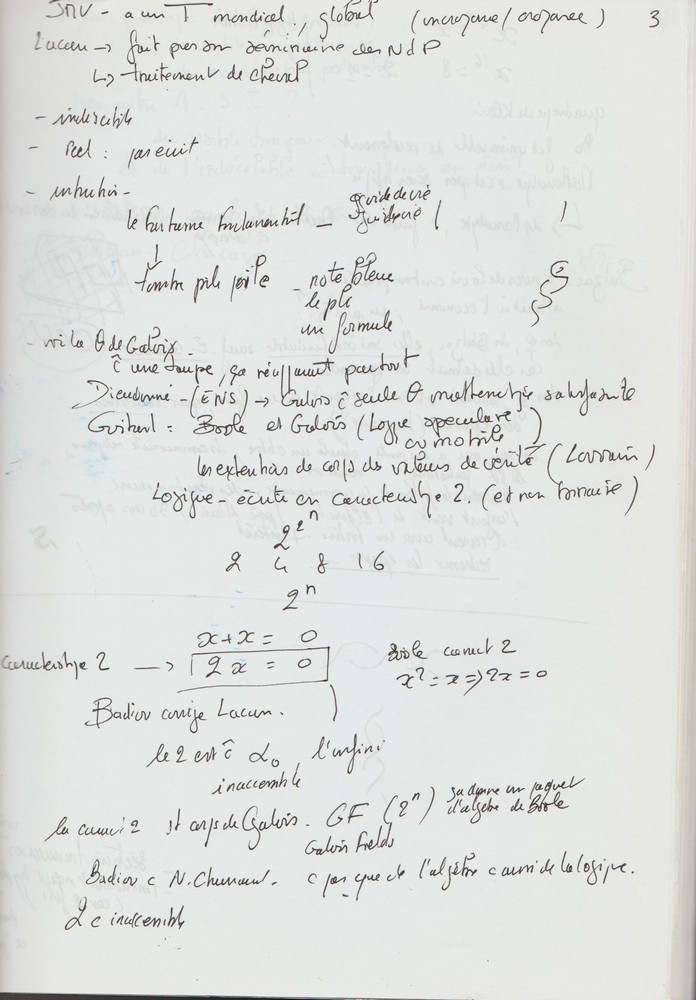 a un T mondial, global (incroyant / croyance) 3
Lacan → fait per son séminaire des N d P
↳ traitement de cheval
- indescible
- réel : par écrit
- intuition -
le fantasme fondamental - guide de vie
↓
tombe pile poile - note bleue
le pli
un formule
- vi la θ de Galois -
c̄ une taupe, ça réapparait partout
Dieudonné - (ENS) → Galois c̄ seule θ mathématique satisfaisante
Guitart : Boole et Galois (Logique speculaire)
ou mobile
les extensions de corps des valeurs de vérité (Lavrain)
Logique - écrite en caractéristique 2. (et non binaire)
2^2^n
2 4 8 16
2^n
x+x = 0
caractéristique 2 → 2x = 0
Boole caract 2
x² = x ⇒ 2x = 0
Badiou corrige Lacan.
le 2 est c̄ α₀, l'infini
inaccessible
la caract 2 et corps de Galois. GF (2^n) ça donne un paquet d'algèbre de Boole
Galois Fields
Badiou c N. c pas que de l'algèbre c aussi de la logique.
2 c inaccessible